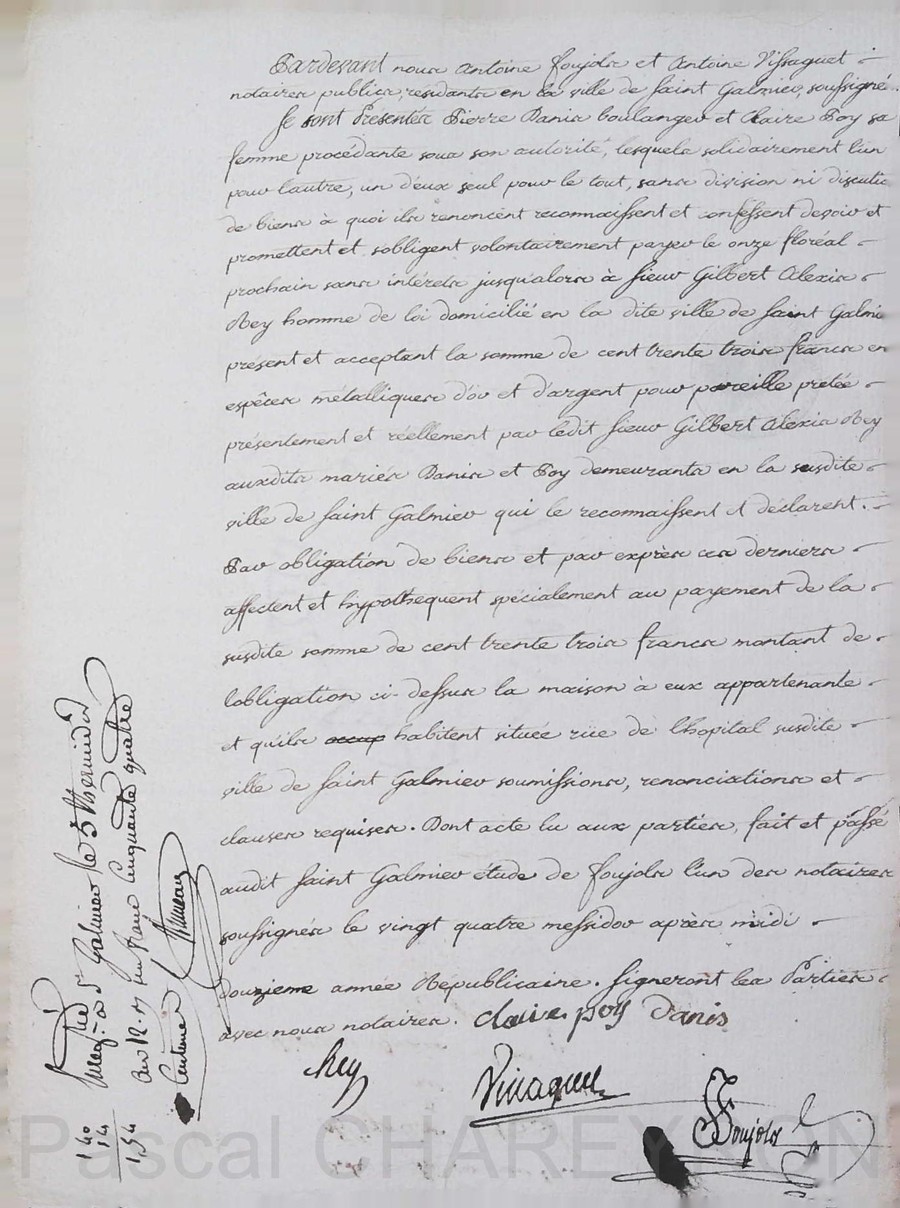 Pardevant nous Antoine Foujols et Antoine Vissaguet
notaires publics, residants en la ville de saint Galmier, soussigné
Se sont Présentés Pierre Danis boulanger et Claire Poy sa
femme procédante sous son autorité, lesquels solidairement l'un
pour lautre, un d'eux seul pour le tout, sans division ni discutio
de biens à quoi ils renoncent reconnaissent et confessent devoir et
promettent et sobligent volontairement payer le onze floréal
prochain sans intérets jusqualors à sieur Gilbert Alexis
Rey homme de loi domicilié en la dite ville de saint Galmie
présent et acceptant la somme de cent trente trois francs en
espêces métalliques d'or et d'argent pour pareille pretée
présentement et réellement par ledit sieur Gilbert Alexis Rey
auxdits mariés Danis et Poy demeurants en la susdite
ville de saint Galmier qui le reconnaissent et déclarent.
Par obligation de biens et par exprès ces derniers
affectent et hypothequent spécialement au payement de la
susdite somme de cent trente trois francs montant de
lobligation ci-dessus la maison à eux appartenante
et quils occup habitent située rüe de lhopital susdite
ville de saint Galmier soumissions, renonciations et
clauses requises. Dont acte lu aux parties, fait et passé
audit saint Galmier étude de foujols l'un des notaires
soussignés le vingt quatre messidor après midi
douzieme année Républicaine. Signeront les Parties
avec nous notaires. claire poy Danis
Rey
Vissaguet
Foujols
à St Galmier le 5 thermidor
an 12. un franc cinquante quatre
centimes
140
14
154
Pascal CHAREYRON